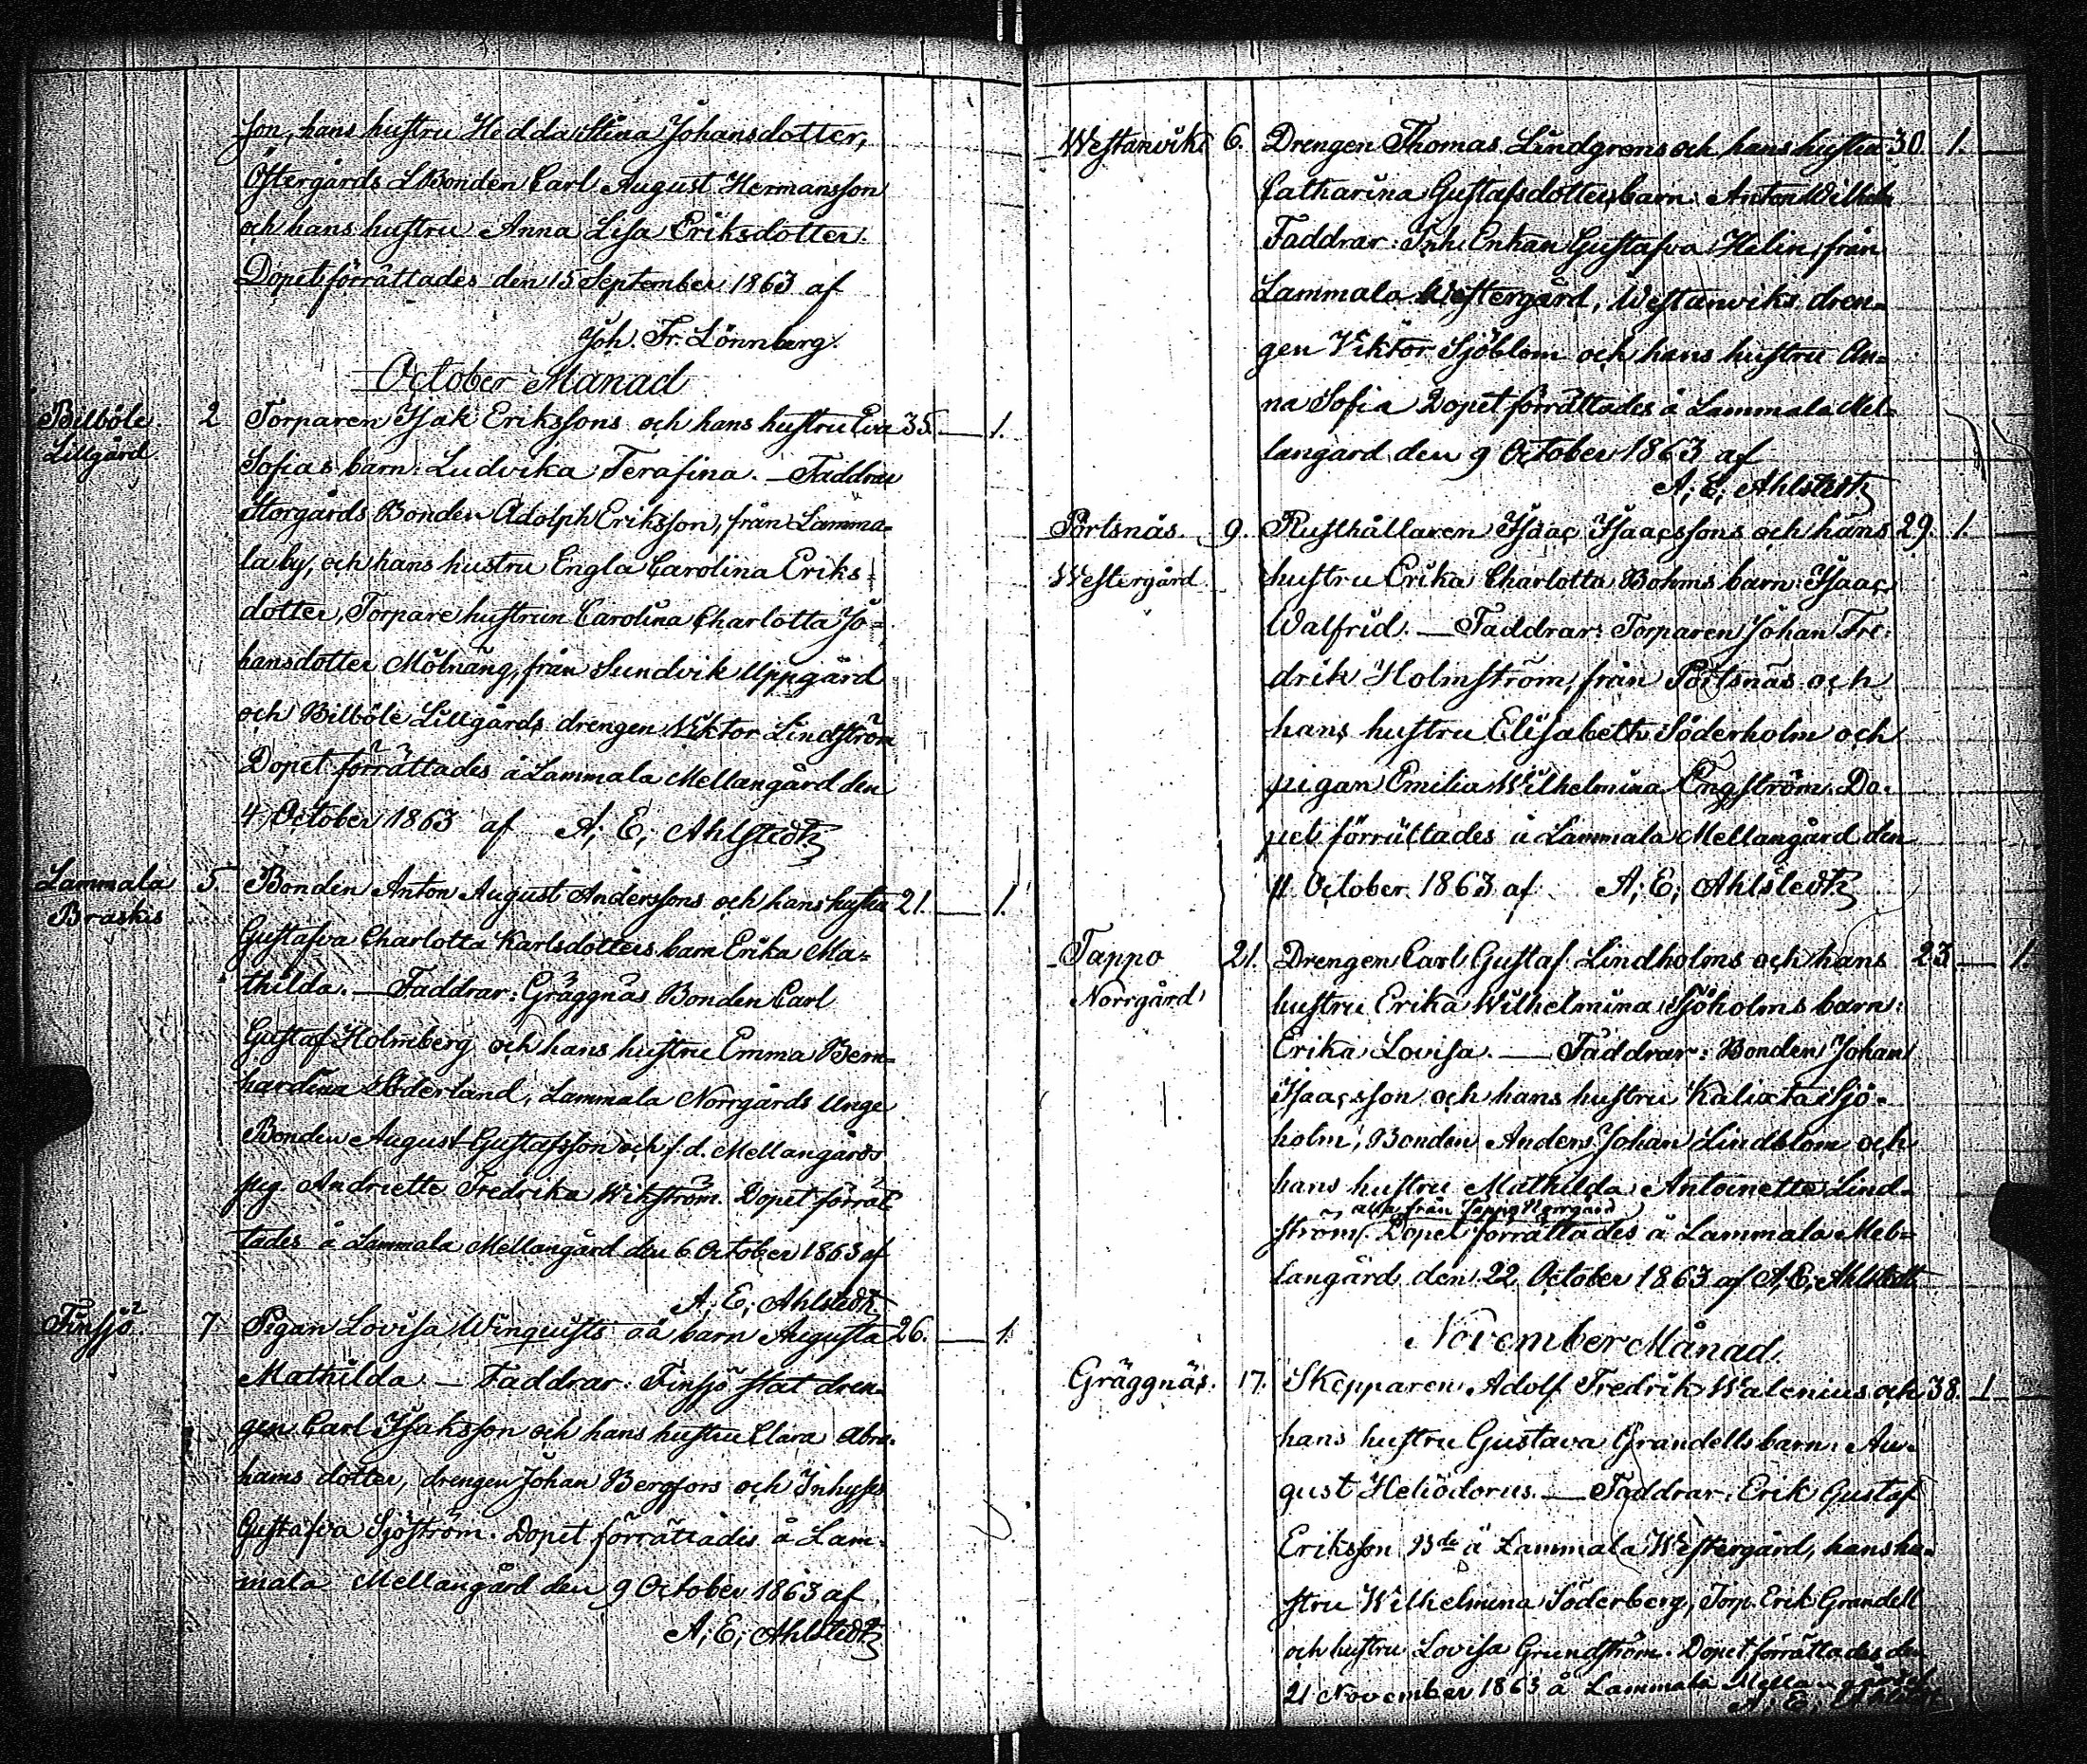 son, hans hustru Hedda Stina Johansdotter,
Östergårds LBonden Carl August Hermansson
och hans hustru Anna Lisa Eriksdotter.
Dopet förrättades den 15 September 1863 af
Joh. Fr. Lönnberg.
October Månad
Bilböle 2 Torparen Isak Erikssons och hans hustru Eva 35. — 1.
Lillgård
Sofias barn: Ludvika Serafina. — Faddrar
Storgårds Bonden Adolph Eriksson, från Lamma-
la by, och hans hustru Engla Carolina Eriks-
dotter, Torpare hustrun Carolina Charlotta Jo-
hansdotter Mölnäng, från Sundvik Uppgård
och Bilböle Lillgårds drengen Viktor Lindström
Dopet förrättades å Lammala Mellangård den
4 October 1863 af A; E; Ahlstedt
Lammala 5. Bonden Anton August Anderssons och hans hustru 21. — 1.
Braskis
Gustafva Charlotta Karlsdotters barn Erika Ma-
thilda. — Faddrar: Gräggnäs Bonden Carl
Gustaf Holmberg och hans hustru Emma Bern-
hardina Söderlund, Lammala Norrgårds Unge
Bonden August Gustafsson och f.d. Mellangårds
pig. Andriette Fredrika Wikström. Dopet förrät-
tades å Lammala Mellangård den 6 October 1863 af
A; E; Ahlstedt
Finsjö 7 Pigan Lovisa Winquists oä barn Augusta 26. — 1.
Mathilda — Faddrar: Finsjö stat dren-
gen Carl Isaksson och hans hustru Clara Abra-
hams dotter, drengen Johan Bergfors och Inhyses
Gustafva Sjöström. Dopet förrättades å Lam-
mala Mellangård den 9 October 1863 af
A; E; Ahlstedt
Westanvik 6. Drengen Thomas Lindgrens och hans hustru 30. 1. —
Catharina Gustafsdotters barn: Anton Wilhelm
Faddrar: Inh. Enkan Gustafva Helin, från
Lammala Westergård, Westanviks dren-
gen Viktor Sjöblom och hans hustru An-
na Sofia Dopet förrättades å Lammala Mel-
langård den 9 October 1863 af
A; E; Ahlstedt
Pörtsnäs. 9. Rusthållaren Isaac Isaacssons och hans 29. 1. —
Westergård
hustru Erika Charlotta Bohms barn: Isaac
Walfrid. — Faddrar: Torparen Johan Fre-
drik Holmström, från Pörtsnäs och
hans hustru Elisabeth Söderholm och
pigan Emilia Wilhelmina Engström. Do-
pet förrättades å Lammala Mellangård den
11 October 1863 af A; E; Ahlstedt
Tappo 21. Drengen Carl Gustaf Lindholms och hans 23 — 1.
Norrgård
hustru Erika Wilhelmina Sjöholms barn:
Erika Lovisa. — Faddrar: Bonden Johan
Isaacsson och hans hustru Kalixta Sjö-
holm, Bonden Anders Johan Lindblom och
hans hustru Mathilda Antoinette Lind-
alla från Tappo Norrgård
ström. Dopet förrättades å Lammala Mel-
langård den 22 October 1863 af A; E; Ahlstedt
November Månad.
Gräggnäs. 17. Skepparen Adolf Fredrik Walenius och 38. 1. —
hans hustru Gustava Grandells barn: Au-
gust Heliodorus. — Faddrar: Erik Gustaf
Eriksson Bde å Lammala Westergård, hans hu-
stru Wilhelmina Söderberg, Torp. Erik Grandell
och hustru Lovisa Grundström. Dopet förrättades den
21 November 1863 å Lammala Mellangård
A; E; Ahlstedt